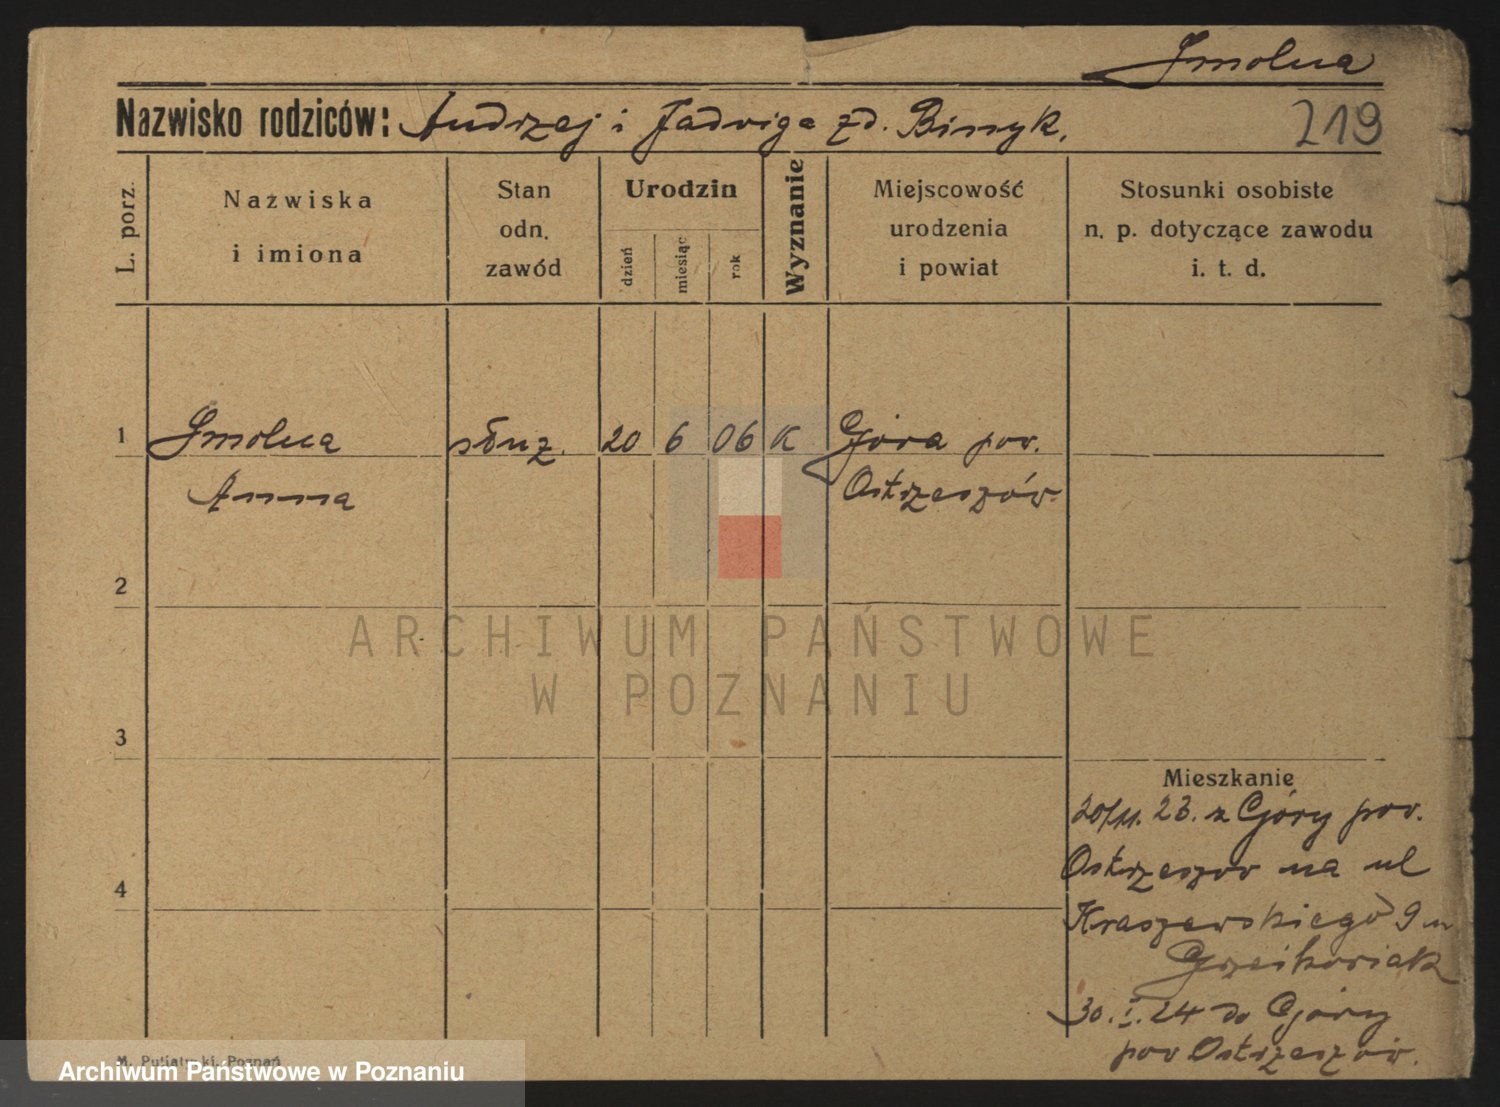 Smolna
Nazwisko rodziców: Andrzej i Jadwiga zd. Binnyk.
219
L. porz.
Nazwiska
i imiona
Stan
odn.
zawód
Urodzin
dzień
miesiąc
rok
Wyznanie
Miejscowość
urodzenia
i powiat
Stosunki osobiste
n. p. dotyczące zawodu
i. t. d.
1 Smolna służ. 20 6 06 K Góra pow.
Anna Ostrzeszów.
2
ARCHIWUM PAŃSTWOWE
W POZNANIU
3
Mieszkanie
20/11. 23. z Góry pow.
4 Ostrzeszów na ul
Kraszewskiego 9 u
30. I. 24 do Góry
pow Ostrzeszów.
M. Putiatycki, Poznań
Archiwum Państwowe w Poznaniu